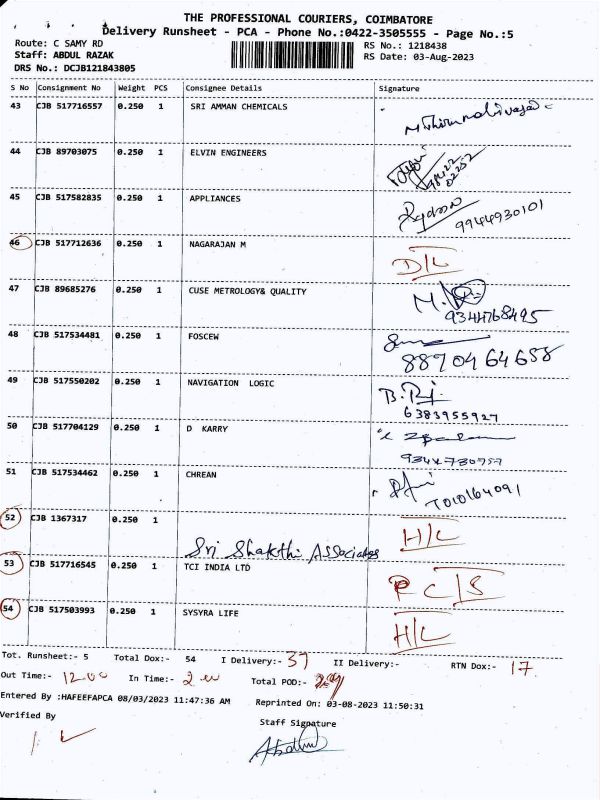 THE PROFESSIONAL COURIERS, COIMBATORE
Delivery Runsheet - PCA - Phone No.:0422-3505555 - Page No.:5
Route: C SAMY RD RS No.: 1218438
Staff: ABDUL RAZAK RS Date: 03-Aug-2023
DRS No.: DCJB121843805
S No Consignment No Weight PCS Consignee Details Signature
43 CJB 517716557 0.250 1 SRI AMMAN CHEMICALS
44 CJB 89703075 0.250 1 ELVIN ENGINEERS
45 CJB 517582835 0.250 1 APPLIANCES
9944930101
46 CJB 517712636 0.250 1 NAGARAJAN M
D/L
47 CJB 89685276 0.250 1 CUSE METROLOGY& QUALITY
9344768495
48 CJB 517534481 0.250 1 FOSCEW
8870464658
49 CJB 517550202 0.250 1 NAVIGATION LOGIC
6383955927
50 CJB 517704129 0.250 1 D KARRY
51 CJB 517534462 0.250 1 CHREAN
7010164091
52 CJB 1367317 0.250 1
Sri Shakthi Associates H/L
53 CJB 517716545 0.250 1 TCI INDIA LTD
P C/S
54 CJB 517503993 0.250 1 SYSYRA LIFE
H/L
Tot. Runsheet:- 5 Total Dox:- 54 I Delivery:- 37 II Delivery:- RTN Dox:- 17
Out Time:- 12.00 In Time:- 2.00 Total POD:-
Entered By :HAFEEFAPCA 08/03/2023 11:47:36 AM Reprinted On: 03-08-2023 11:50:31
Verified By Staff Signature